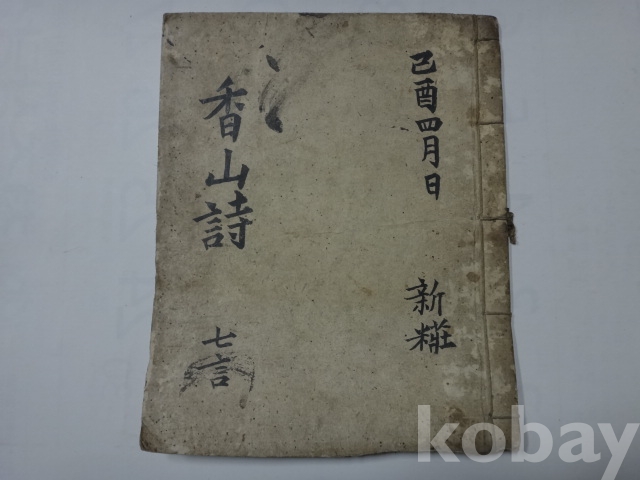 己酉四月日
新糚
香山詩
七言
kobay